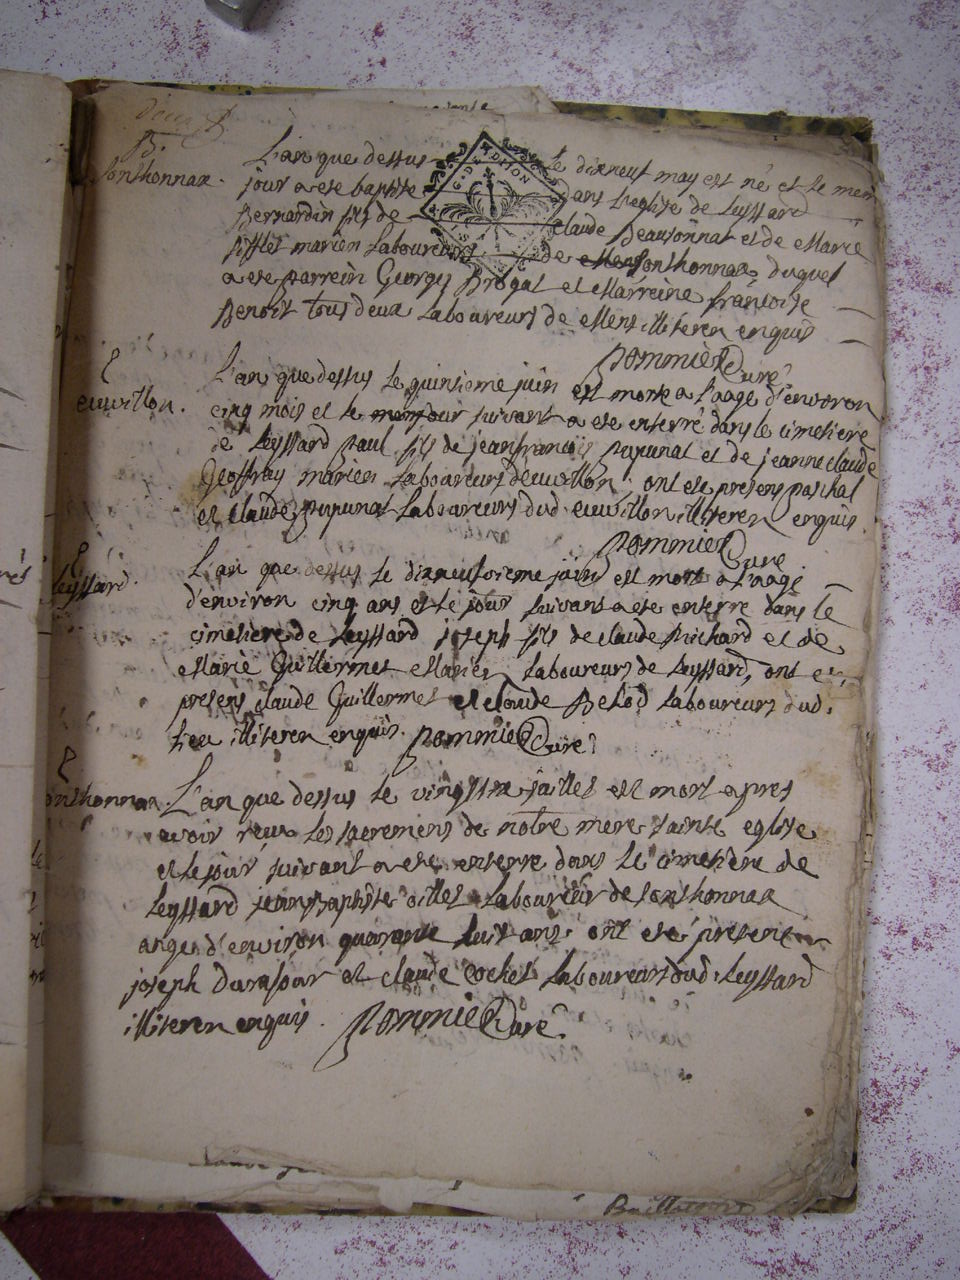 B.
Sonthonnax.
L'an que dessus le dixneuf may est né et le mem
jour a ete baptise dans l'eglise de Leyssard
Bernardin fils de claude Beausonnat et de Marie
marien Laboureurs de Sonthonnax duquel
a ete parrein Georgy Brogat et Marreine françoise
Benoit tous deux Laboureurs de illiteren enquis
Pommier Curé
G. DE DIJON
euvillon.
L'an que dessus le quinsieme juin est mort a l'aage d'environ
cinq mois et le jour suivant a ete enterré dans le cimetiere
de Leyssard Paul fils de jeanfrancois Pupunat et de jeanne claude
Geoffray marien Laboureurs d'euvillon ont ete presens paschal
et Claude Pupunat Laboureurs dud. euvillon illiteren enquis.
Pommier Curé
Leyssard.
L'an que dessus le juin est mort a l'aage
d'environ cinq ans et le jour suivant a ete enterré dans le
cimetiere de Leyssard joseph fils de claude Richard et de
Marie Guillermet Marien Laboureurs de Leyssard, ont e
presens claude Guillermet et claude Laboureurs dud.
lieu illiteren enquis. Pommier Curé
onthonnax.
L'an que dessus le vingtsix juillet est mort apres
avoir reçu les sacremens de notre mere sainte eglise
et le jour suivant a ete enterré dans le cimetiere de
Leyssard jean Baptiste Laboureur de Sonthonnax
aagé d'environ quarante huit ans ont eté presens
joseph Durafour et claude cochet Laboureurs dud. Leyssard
illiteren enquis. Pommier Curé